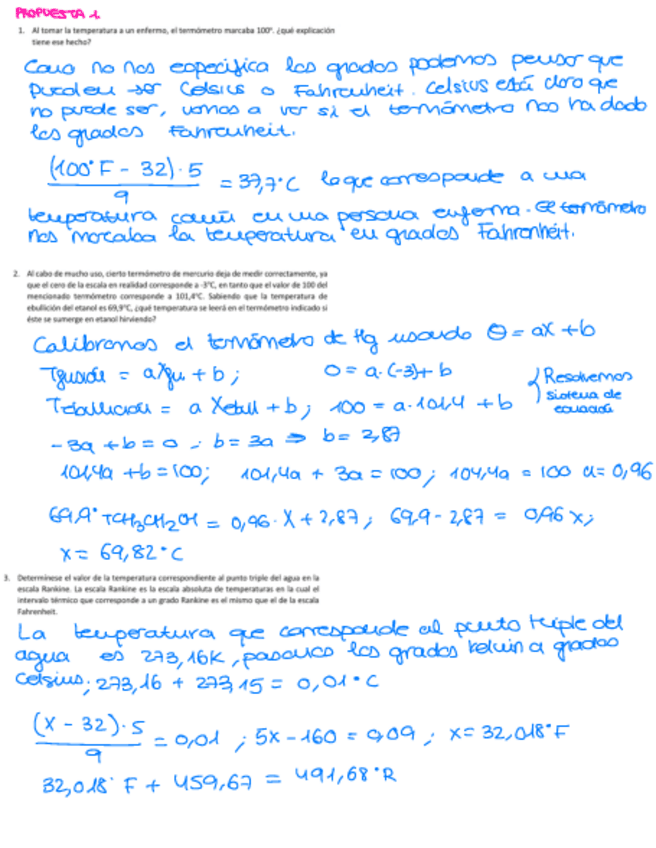 PROPUESTA 1
1. Al tomar la temperatura a un enfermo, el termómetro marcaba 100°. ¿qué explicación
tiene ese hecho?
Como no nos especifica los grados podemos pensar que
pueden ser Celsius o Fahrenheit. Celsius está claro que
no puede ser, vamos a ver si el termómetro nos ha dado
los grados Fahrenheit.
(100°F - 32) · 5 / 9 = 37,7°C lo que corresponde a una
temperatura común en una persona enferma. El termómetro
nos marcaba la temperatura en grados Fahrenheit.
2. Al cabo de mucho uso, cierto termómetro de mercurio deja de medir correctamente, ya
que el cero de la escala en realidad corresponde a -3°C, en tanto que el valor de 100 del
mencionado termómetro corresponde a 101,4°C. Sabiendo que la temperatura de
ebullición del etanol es 69,9°C, ¿qué temperatura se leerá en el termómetro indicado si
éste se sumerge en etanol hirviendo?
Calibramos el termómetro de Hg usando θ = ax + b
Tfusión = aXfu + b; 0 = a·(-3) + b
Tebullición = a Xebull + b; 100 = a·101,4 + b
Resolvemos
sistema de
ecuación
-3a + b = 0 ; b = 3a ⇒ b = 2,87
101,4a + b = 100; 101,4a + 3a = 100; 104,4a = 100 a = 0,96
69,9° TCH3CH2OH = 0,96 · X + 2,87; 69,9 - 2,87 = 0,96 x;
x = 69,82°C
3. Determínese el valor de la temperatura correspondiente al punto triple del agua en la
escala Rankine. La escala Rankine es la escala absoluta de temperaturas en la cual el
intervalo térmico que corresponde a un grado Rankine es el mismo que el de la escala
Fahrenheit.
La temperatura que corresponde al punto triple del
agua es 273,16K, pasamos los grados kelvin a grados
Celsius; 273,16 + 273,15 = 0,01°C
(x - 32) · 5 / 9 = 0,01 ; 5x - 160 = 0,09 ; x = 32,018°F
32,018° F + 459,67 = 491,68°R